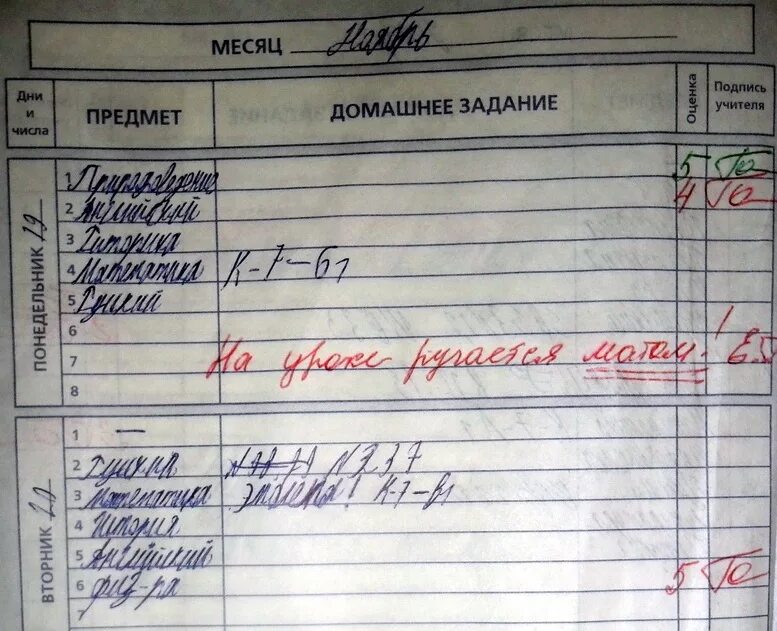 МЕСЯЦ Ноябрь
Дни и числа ПРЕДМЕТ ДОМАШНЕЕ ЗАДАНИЕ Оценка Подпись учителя
ПОНЕДЕЛЬНИК 19
1 Природоведение 5
2 Английский 4
3 Риторика
4 Математика К-7-Б1
5 Руский
6
7 На уроке ругается матом!
8
ВТОРНИК 20
1 —
2 N237
3 Математика К-7-В1
4 История
5 Английский
6 физ-ра 5
7